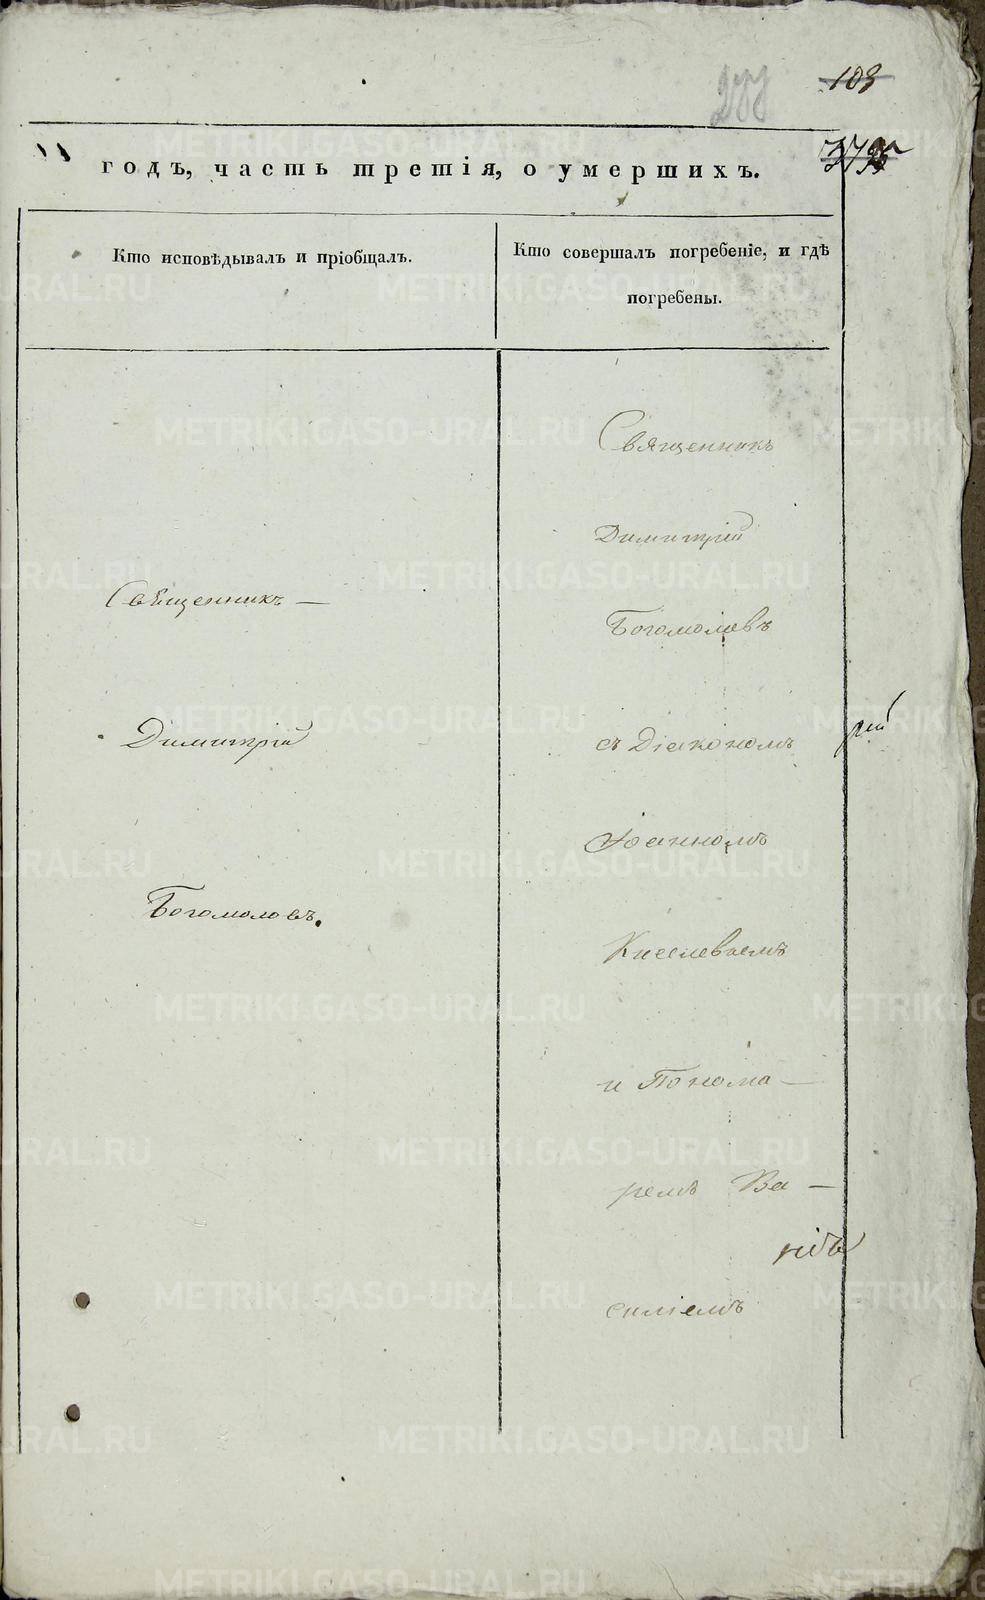 103
годъ, часть третія, о умершихъ.
Кто исповѣдывалъ и пріобщалъ.
Кто совершалъ погребеніе, и гдѣ
погребены.
Священникъ —
Димитрій
Богомоловъ.
Священникъ
Димитрій
Богомоловъ
съ Діакономъ
Іоанномъ
Киселевымъ
и Понома —
ремъ Ва —
силіемъ
METRIKI.GASO-URAL.RU